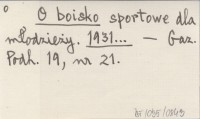 O boisko sportowe dla
młodzieży. 1931... — Gaz.
Podh. 19, nr 21.